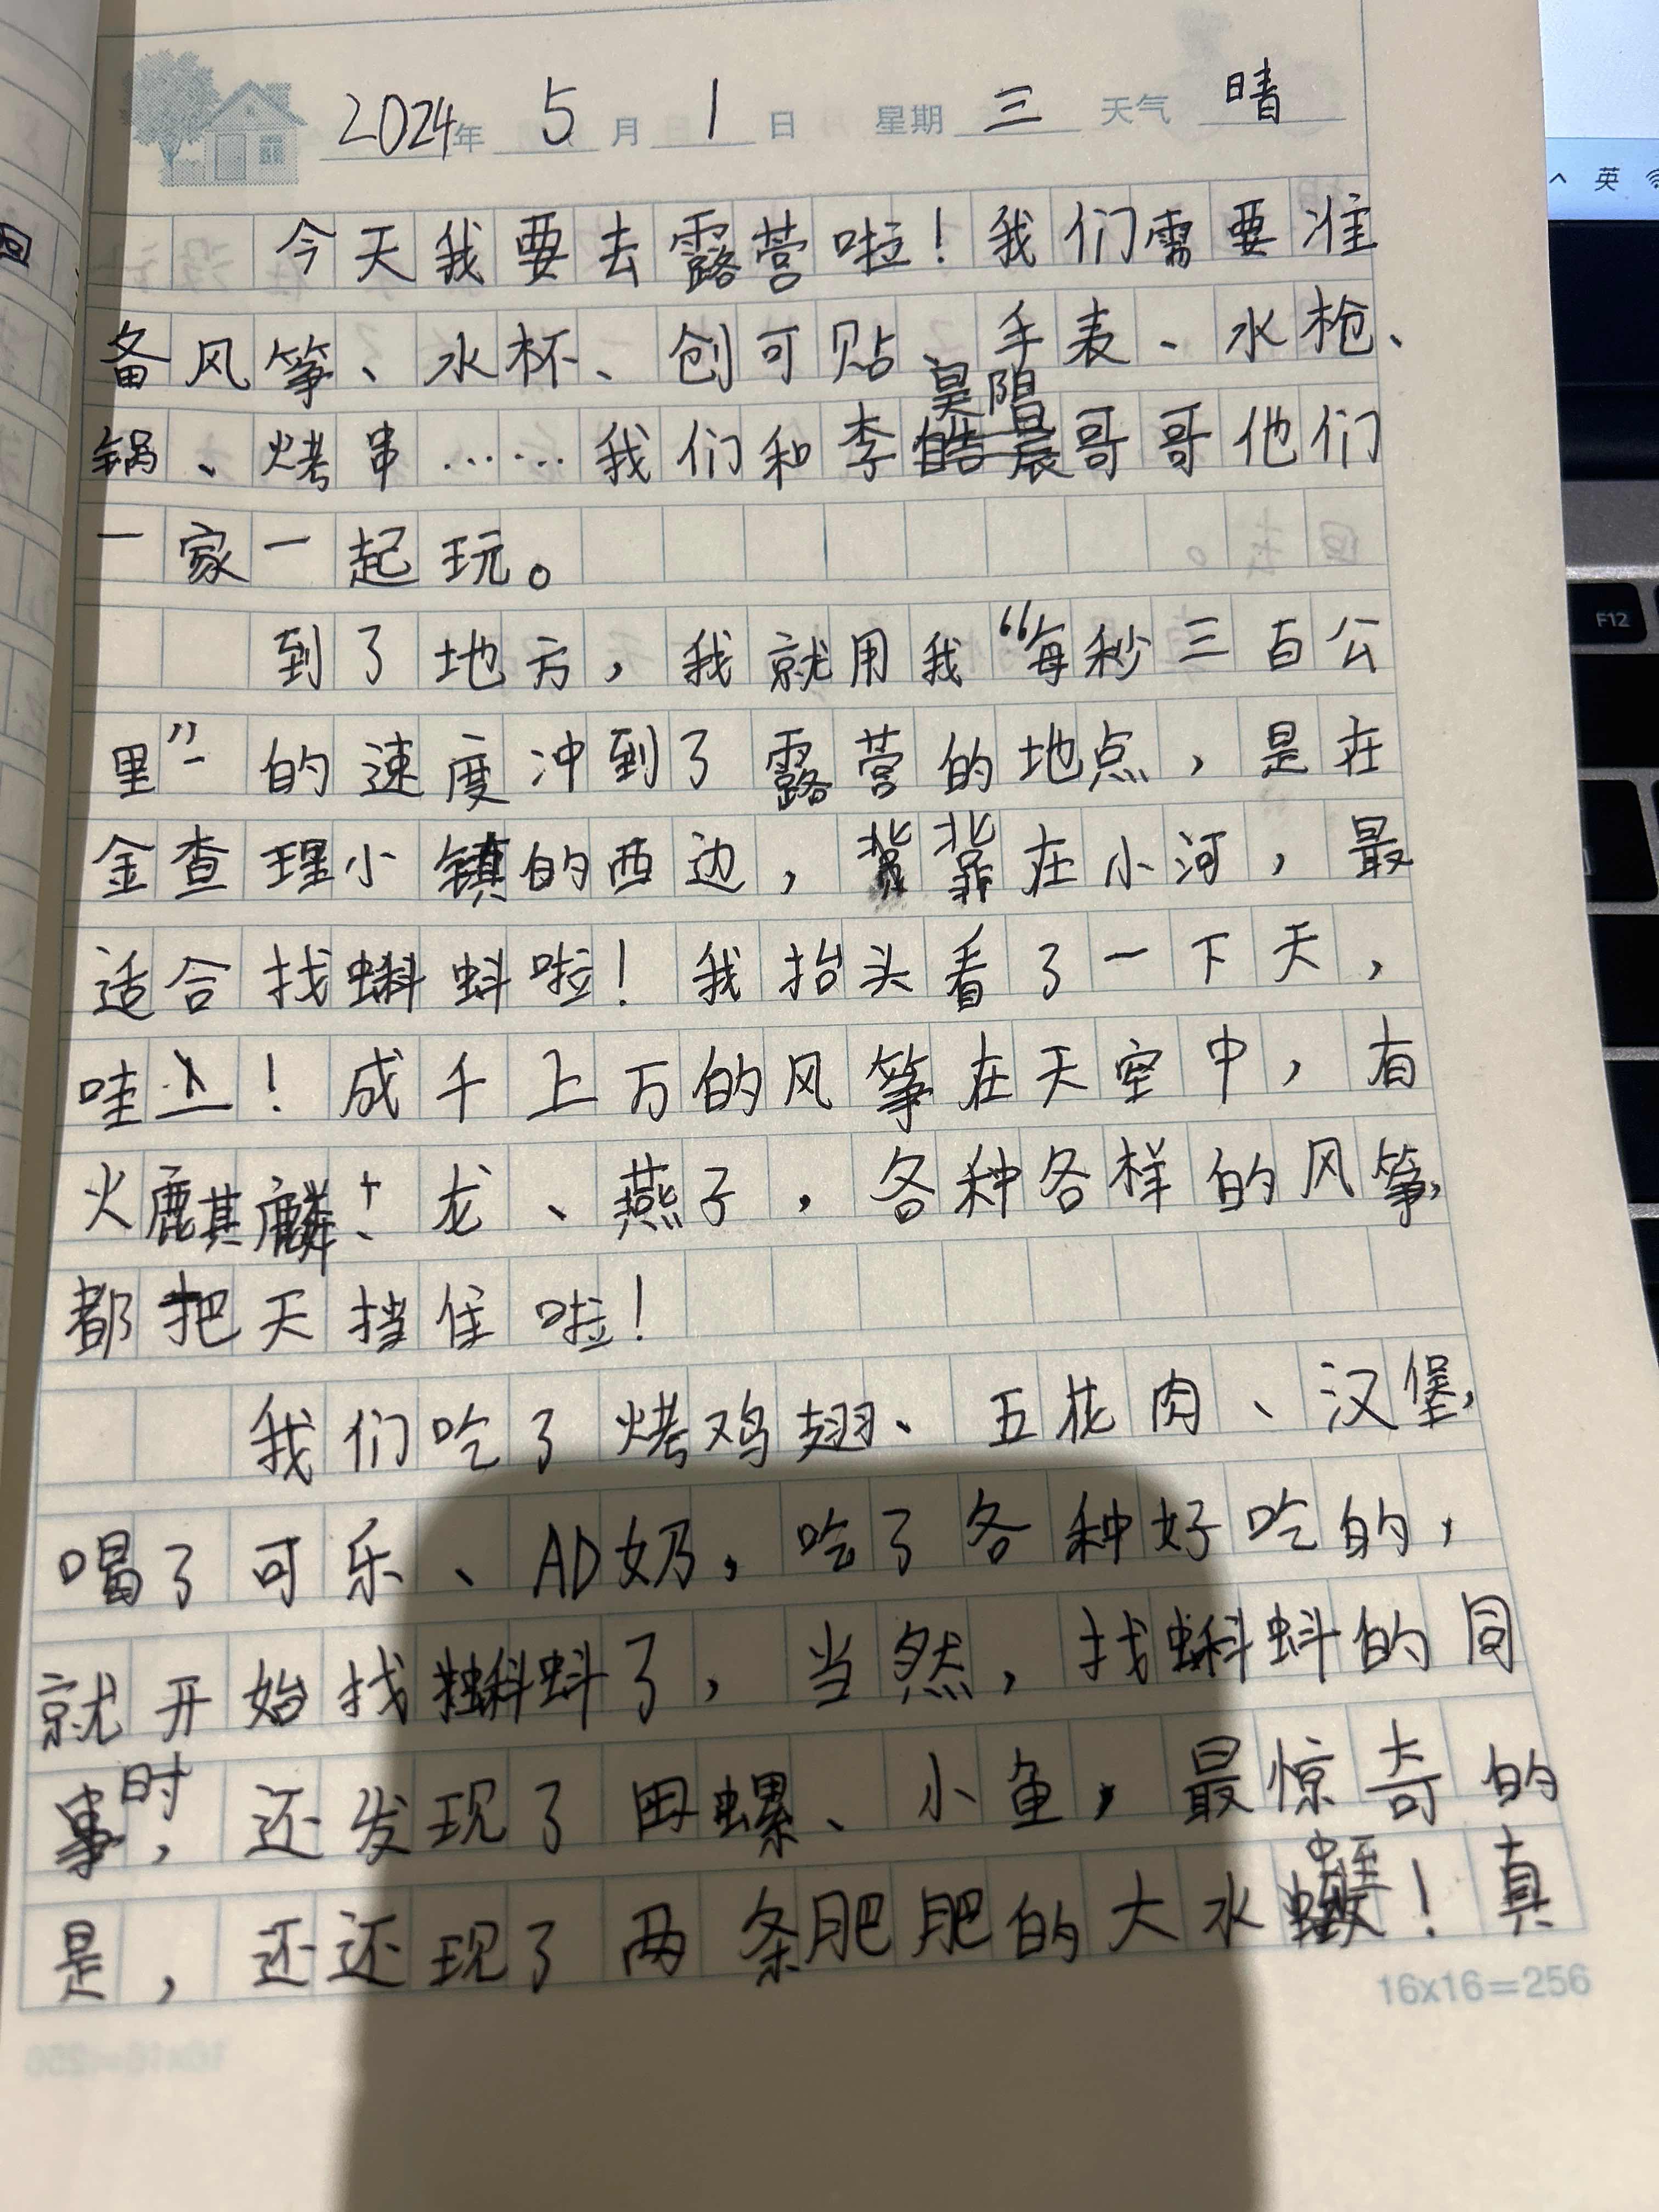 2024年 5月 1日 星期 三 天气 晴
今天我要去露营啦！我们需要准
备风筝、水杯、创可贴、手表、水枪、
锅、烤串……我们和李昊阳哥哥他们
一家一起玩。
到了地方，我就用我“每秒三百公
里”的速度冲到了露营的地点，是在
金查理小镇的西边，背靠在小河，最
适合找蝌蚪啦！我抬头看了一下天，
哇！成千上万的风筝在天空中，有
火麒麟、龙、燕子，各种各样的风筝，
都把天挡住啦！
我们吃了烤鸡翅、五花肉、汉堡，
喝了可乐、AD奶，吃了各种好吃的，
就开始找蝌蚪了，当然，找蝌蚪的同
时，还发现了田螺、小鱼，最惊奇的
是，还还现了两条肥肥的大水蛭！真
16x16=256
英
F12